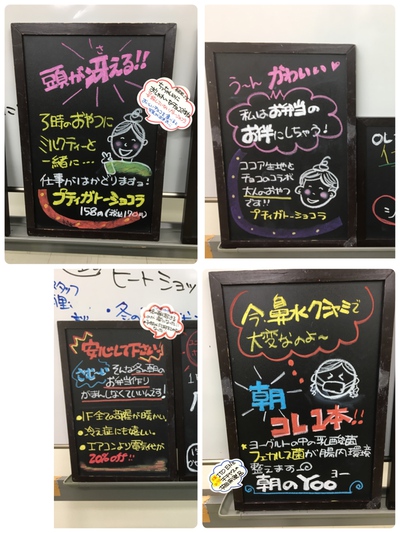 頭が冴える!!
さ
3時のおやつに
ミルクティーと
一緒に…
仕事がはかどりますョ!
プティガトーショコラ
158円(税込170円)
う〜ん かわいい♥
私はお弁当の
お伴にしちゃう!
ココア生地と
チョコのコラボ
大人のおやつ
です!!
プティガトーショコラ
ヒートショッ
安心して下さい!
さむ〜い そんな冬の朝の
お弁当作り
がまんしなくていいんです!
●1F全ての部屋が暖かい。
●冷え症にも嬉しい。
●エアコンより電気代が
20%off!!
今、鼻水クシャミで
大変なのよ〜
朝
コレ1本!!
★ヨーグルトの中の乳酸菌
フェカリス菌が腸内環境
整えます。
ヨー
朝のYOO